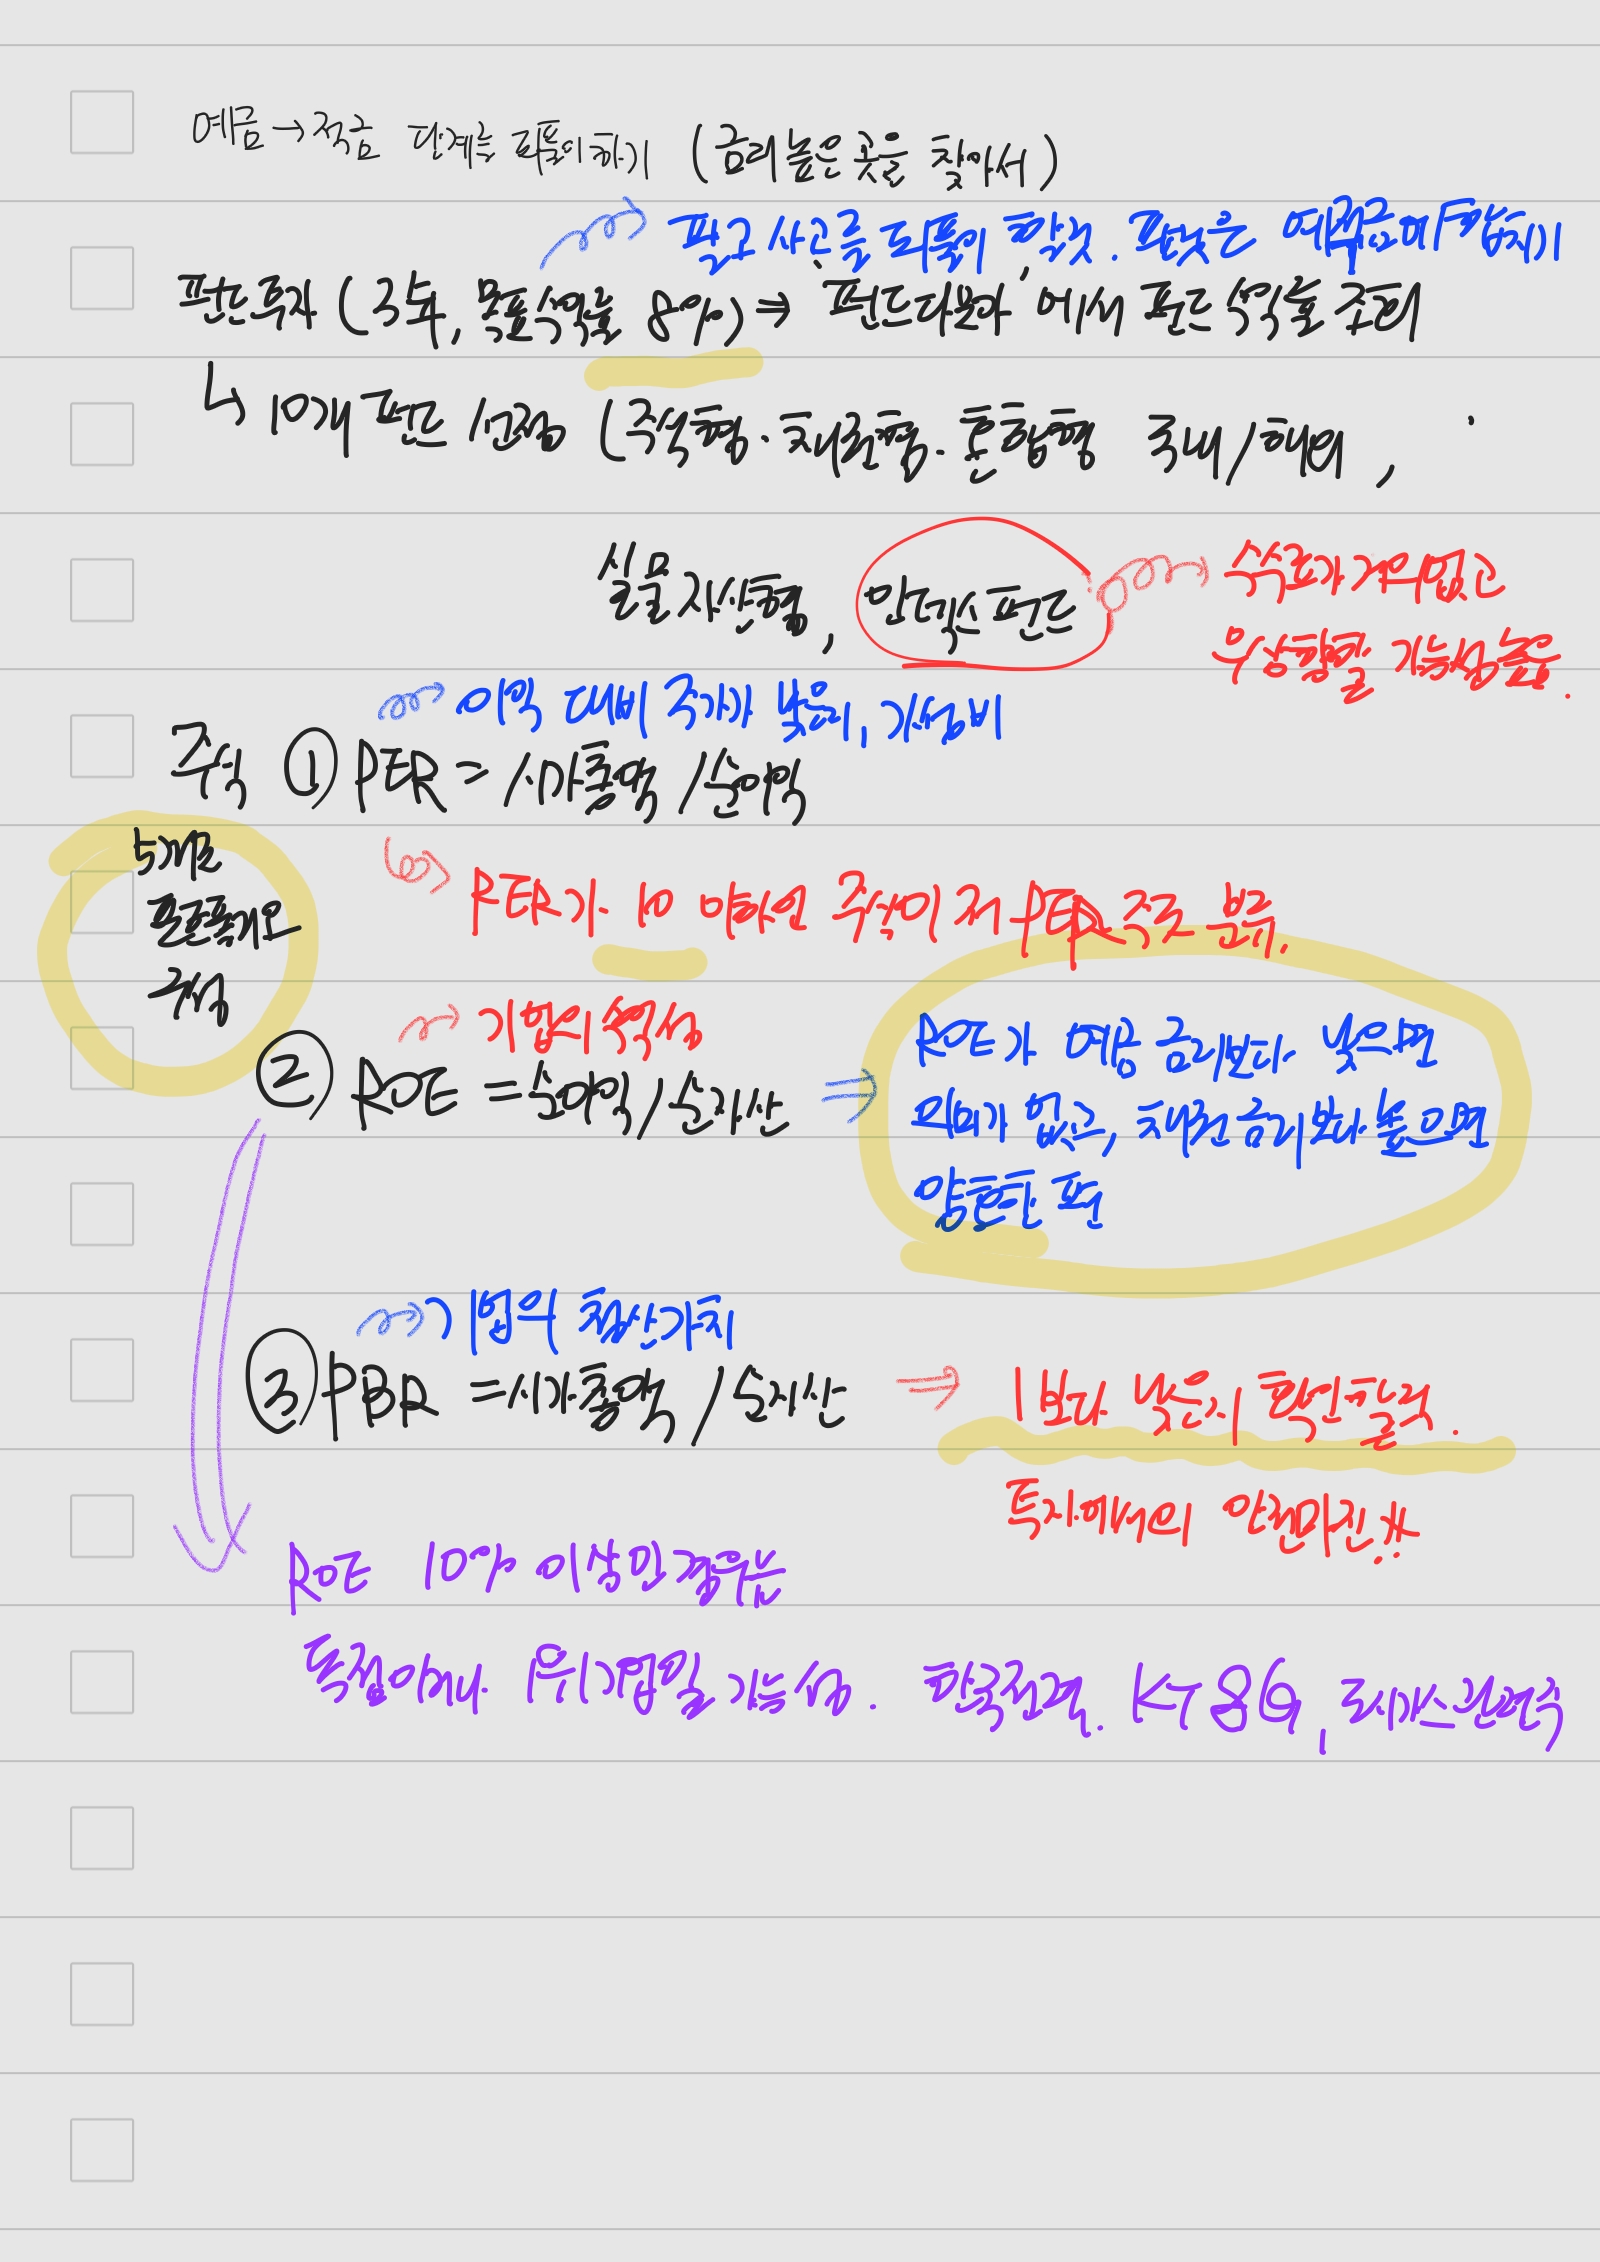 예금→적금 단계를 되풀이하기 (금리 높은 곳을 찾아서)
팔고 사고를 되풀이 할것. 판것은 예적금에 합치기
펀드투자 (3년, 목표수익률 8%) ⇒ 펀드다모아 에서 펀드 수익률 조회
↳ 10개 펀드 선정 (주식형·채권형·혼합형 국내/해외,
실물자산형, 인덱스펀드
수수료가 거의없고
우상향할 가능성높음.
이익 대비 주가가 낮은지, 가성비
주식 ① PER = 시가총액/순이익
5개로
포트폴리오
구성
PER가 10 이하인 주식이 저PER주로 분류.
기업의 수익성
② ROE = 순이익/순자산 ⇒
ROE가 예금 금리보다 낮으면
의미가 없고, 채권금리보다 높으면
양호한 편
기업의 청산가치
③ PBR = 시가총액/순자산 ⇒ 1보다 낮은지 확인할것.
투자에서의 안전마진!!
ROE 10% 이상인 경우는
독점이거나 1위기업일 가능성. 한국전력. KT&G, 도시가스관련주